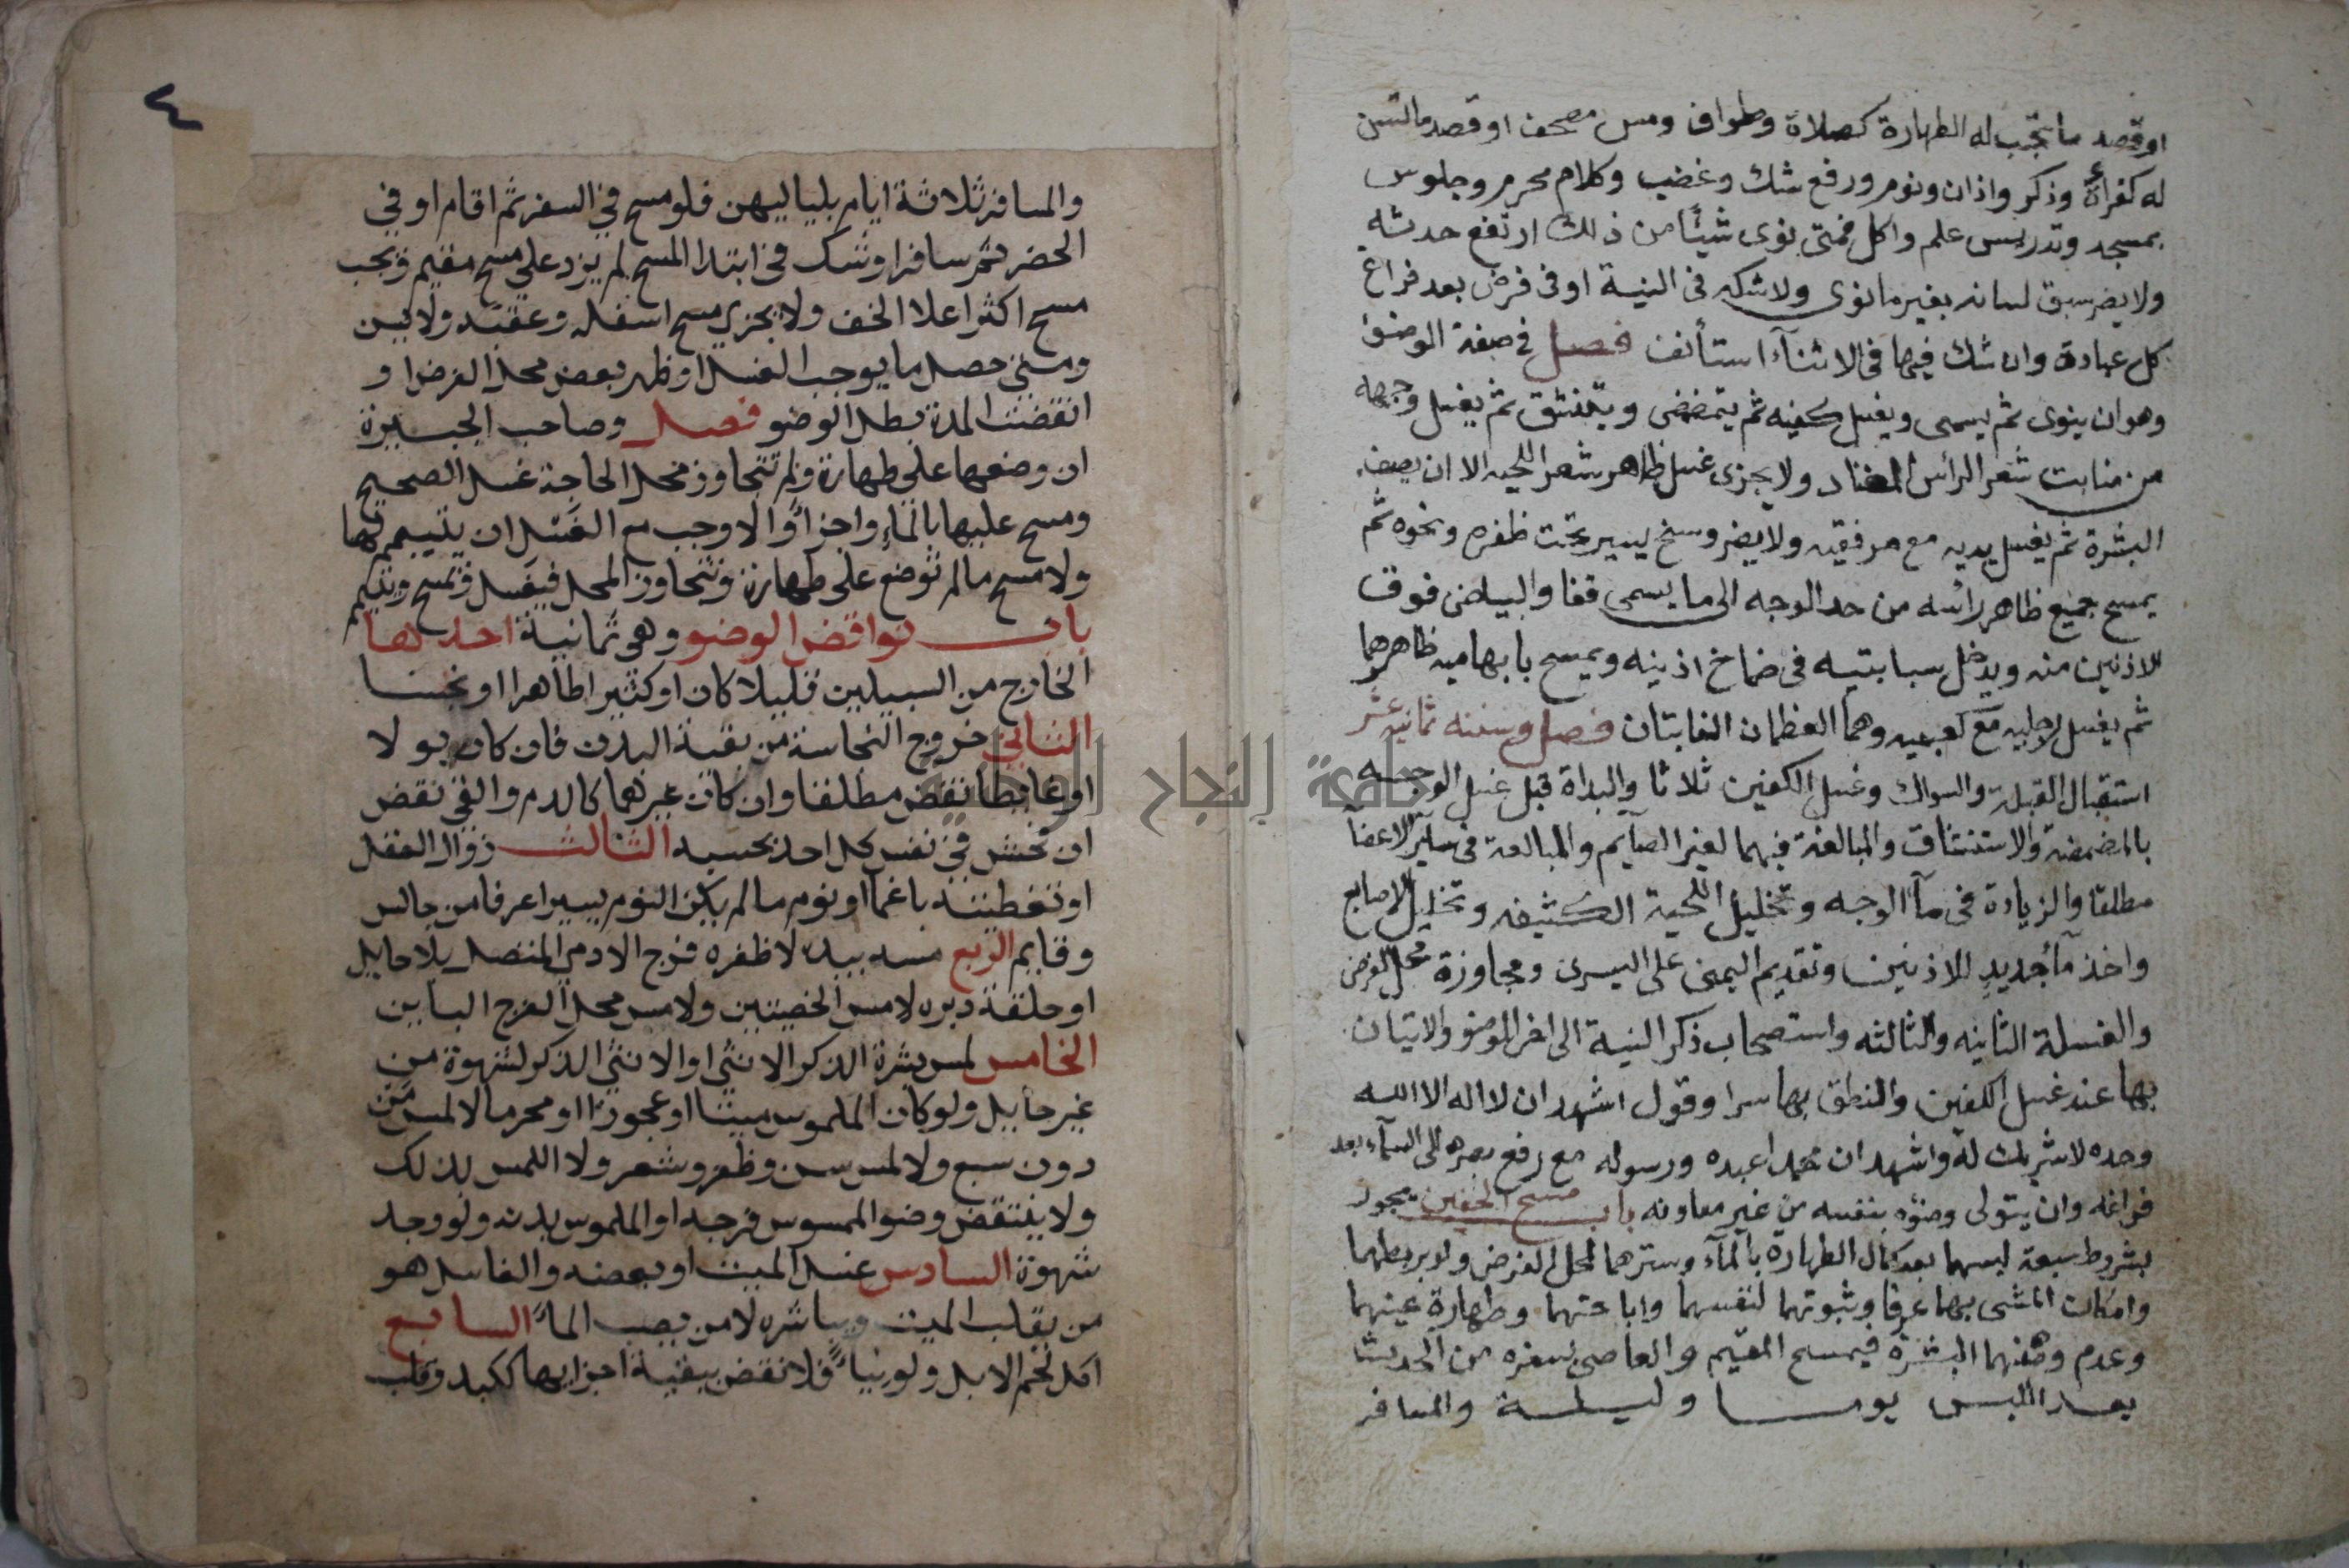 او قصد ما تجب له الطهارة كصلاة وطواف ومس مصحف او قصد ما تسن
له كقرأة وذكر واذان ونوم ورفع شك وغضب وكلام محرم وجلوس
بمسجد وتدريس علم واكل فمتى نوى شيئا من ذلك ارتفع حدثه
ولا يضر سبق لسانه بغير ما نوى ولا شكه فى النية او فى فرض بعد فراغ
كل عبادة وان شك فيها فى الاثناء استأنف فصل في صفة الوضوء
وهو ان ينوى ثم يسمى ويغسل كفيه ثم يتمضمض ويستنشق ثم يغسل وجهه
من منابت شعر الرأس المعتاد ولا يجزى غسل ظاهر شعر اللحيه الا ان يصف
البشرة ثم يغسل يديه مع مرفقيه ولا يضر وسخ يسير تحت ظفره ونحوه ثم
يمسح جميع ظاهر رأسه من حد الوجه الى ما يسمى قفا والبياض فوق
الاذنين منه ويدخل سبابتيه فى صماخ اذنيه ويمسح بابهاميه ظاهرهما
ثم يغسل رجليه مع كعبيه وهما العظمان الناتئان فصل وسننه ثمانيه عشر
استقبال القبلة والسواك وغسل الكفين ثلاثا والبداة قبل غسل الوجه
بالمضمضة والاستنشاق والمبالغة فيهما لغير الصآيم والمبالغة فى سآير الاعضآ
مطلقا والزيادة فى مآ الوجه وتخليل اللحية الكثيفه وتخليل الاصابع
واخذ مآ جديد للاذنين وتقديم اليمنى على اليسرى ومجاوزة محل الفرض
والغسلة الثانيه والثالثه واستصحاب ذكر النية الى اخر الوضو والاتيان
بها عند غسل الكفين والنطق بها سرا وقول اشهد ان لا اله الا الله
وحده لا شريك له واشهد ان محمدا عبده ورسوله مع رفع بصره الى السمآء بعد
فراغه وان يتولى وضوءه بنفسه من غير معاونه باب مسح الخفين يجوز
بشروط سبعة لبسهما بعد كمال الطهارة بالمآء وسترهما لمحل الفرض ولو بربطهما
وامكان المشى بهما عرفا وثبوتهما لنفسهما واباحتهما وطهارة عينهما
وعدم وصفهما البشرة فيمسح المقيم والعاصى بسفره من الحدث
بعد اللبس يوما وليلة والمسافر
٤
والمسافر ثلاثة ايام بلياليهن فلو مسح في السفر ثم اقام او في
الحضر ثم سافر او شك فى ابتدا المسح لم يزد على مسح مقيم ويجب
مسح اكثر اعلا الخف ولا يجزي مسح اسفله وعقبه ولا يسن
ومتى حصل ما يوجب الغسل او ظهر بعض محل الفرض او
انقضت المدة بطل الوضو فصل وصاحب الجبيرة
ان وضعها على طهارة ولم تتجاوز محل الحاجة غسل الصحيح
ومسح عليها بالماء واجزأ والا وجب مع الغسل ان يتيمم لها
ولا مسح ما لم توضع على طهارة وتتجاوز المحل فيغسل ويمسح ويتيمم
باب نواقض الوضو وهى ثمانية احدها
الخارج من السبيلين قليلا كان او كثيرا طاهرا او نجسا
الثاني خروج النجاسة من بقية البدن فان كان بولا
او غايطا نقض مطلقا وان كان غيرهما كالدم والقي نقض
ان فحش في نفس كل احد بحسبه الثالث زوال العقل
او تغطيته باغما او نوم ما لم يكن النوم يسيرا عرفا من جالس
وقايم الربع مسه بيده لا ظفره فرج الادمي المتصل بلا حايل
او حلقة دبره لا مس الخصيتين ولا مس محل الفرج الباين
الخامس لمس بشرة الذكر الانثي او الانثي الذكر لشهوة من
غير حايل ولو كان الملموس ميتا او عجوزا او محرما لا لمس من
دون سبع ولا لمس سن وظفر وشعر ولا اللمس بذلك
ولا ينتقض وضو الممسوس فرجه او الملموس بدنه ولو وجد
شهوة السادس غسل الميت او بعضه والغاسل هو
من يقلب الميت ويباشره لا من يصب الماء السابع
اكل لحم الابل ولو نيا فلا نقض ببقية اجزايها ككبد وقلب
جامعة النجاح الوطنية